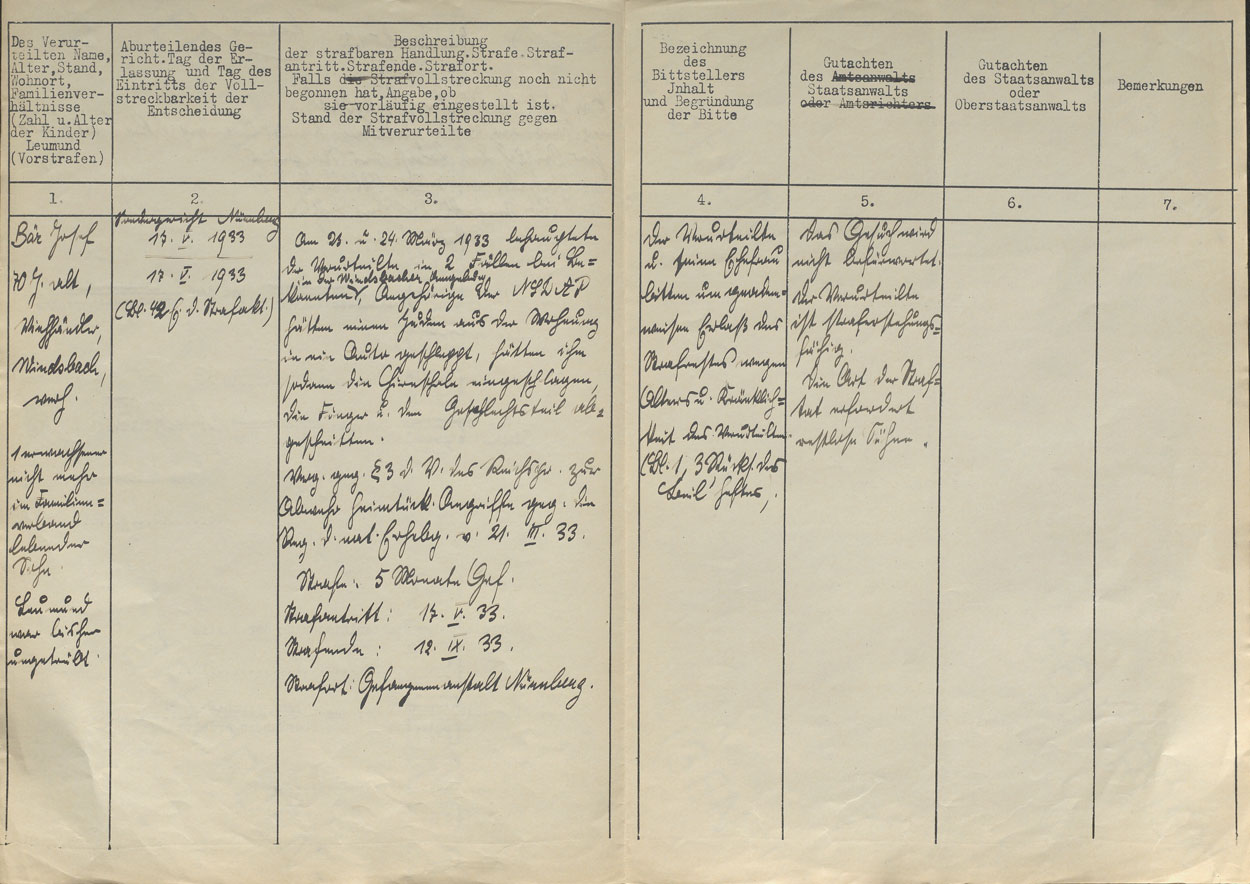 Des Verur-
teilten Name,
Alter,Stand,
Wohnort,
Familienver-
hältnisse
(Zahl u.Alter
der Kinder)
Leumund
(Vorstrafen)
Aburteilendes Ge-
richt.Tag der Er-
lassung und Tag des
Eintritts der Voll-
streckbarkeit der
Entscheidung
Beschreibung
der strafbaren Handlung.Strafe.Straf-
antritt.Strafende.Strafort.
Falls die Strafvollstreckung noch nicht
begonnen hat,Angabe,ob
sie vorläufig eingestellt ist.
Stand der Strafvollstreckung gegen
Mitverurteilte
Bezeichnung
des
Bittstellers
Jnhalt
und Begründung
der Bitte
Gutachten
des Amtsanwalts
Staatsanwalts
oder Amtsrichters.
Gutachten
des Staatsanwalts
oder
Oberstaatsanwalts
Bemerkungen
1.
2.
3.
4.
5.
6.
7.
Bär Josef
70 J. alt,
Viehhändler,
Windsbach,
verh.
1 erwachsener
nicht mehr
im Familien=
verband
lebender
Sohn.
Leumund
war bisher
ungetrübt.
Sondergericht Nürnberg
17. V. 1933
17. V. 1933
(Bl. 42 d. Strafakt.)
Am 23. u. 24. März 1933 behauptete
der Verurteilte in 2 Fällen bei Be=
in der Windsbacher Umgebung
kannten, Angehörige der NSDAP
hätten einen Juden aus der Wohnung
in ein Auto geschleppt, hätten ihm
sodann die Hirnschale eingeschlagen,
die Finger u. den Geschlechtsteil ab=
geschnitten.
Verg. geg. § 3 d. V. des Reichspr. zur
Abwehr heimtück. Angriffe geg. die
Reg. d. nat. Erhebg. v. 21. III. 33.
Strafe: 5 Monate Gef.
Strafantritt: 17. V. 33.
Strafende: 12. IX. 33.
Strafort: Gefangenenanstalt Nürnberg.
Der Verurteilte
u. seine Ehefrau
bitten um gnaden=
weisen Erlaß des
Strafrestes wegen
Alters u. Kränklich=
keit des Verurteilten.
(Bl. 1, 3 Rücks. des
Heftes,.
Das Gesuch wird
nicht befürwortet.
Der Verurteilte
ist straferstehungs=
fähig.
Die Art der Straf=
tat erfordert
restlose Sühne.